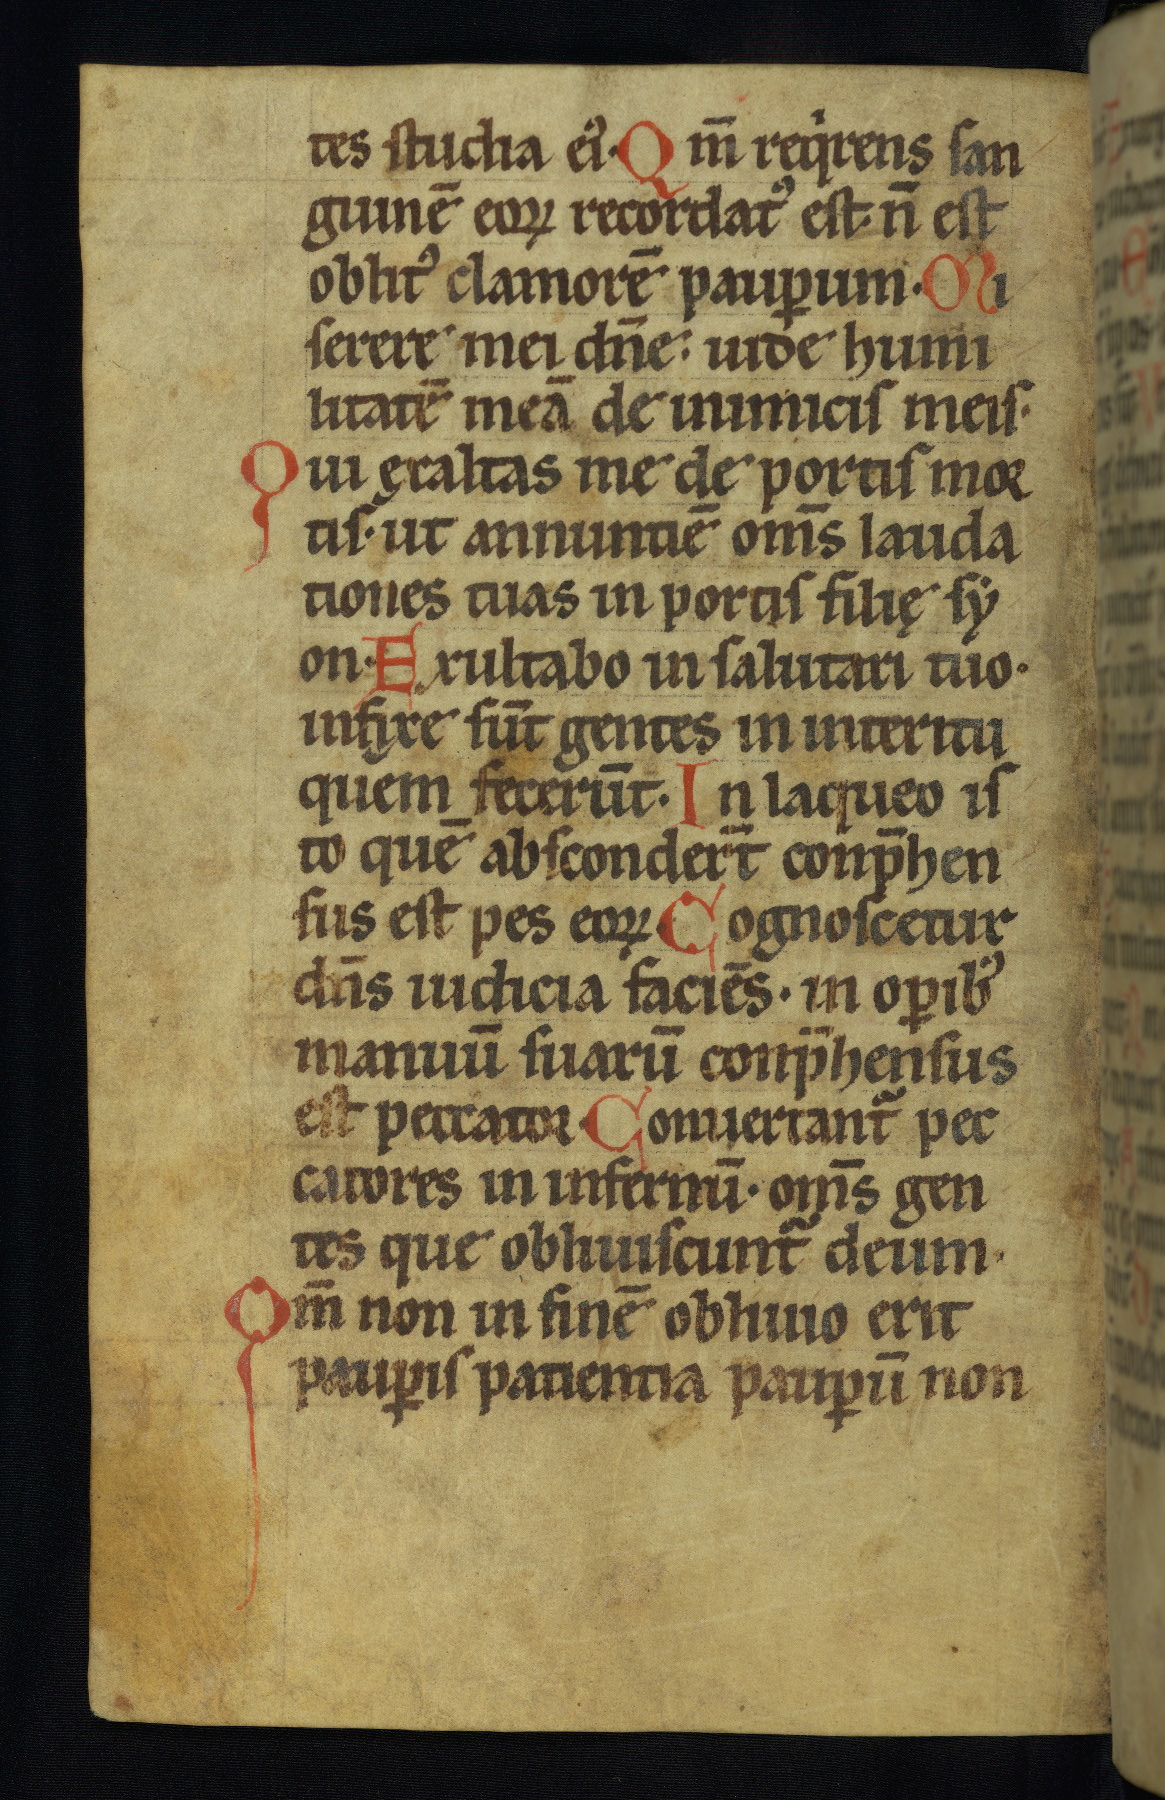 tes studia ei᷒. Qm̄ reqͥrens san
guinē eoꝝ recordatꝰ est. n̄ est
oblitꝰ clamorē paup̲um. Mi
serere mei dn̄e: uide humi
litatē meā de inimicis meis.
Qui exaltas me de portis mor
tis. ut annuntiē om̄s lauda
tiones tuas in portis filię sy
on. Exultabo in salutari tuo.
infixe sūt gentes in interitu
quem fecerūt. In laqueo is
to quē absconder̄t conp̄hen
sus est pes eoꝝ. Cognoscetur
dn̄s iudicia faciēs. in oꝑibꝰ
manuū suarū conp̄hensus
est peccator. Conuertant᷑ pec
catores in infernū. om̄s gen
tes que obliuiscunt᷑ deum.
Qm̄ non in finē obliuio erit
pauꝑis patientia pauꝑū non